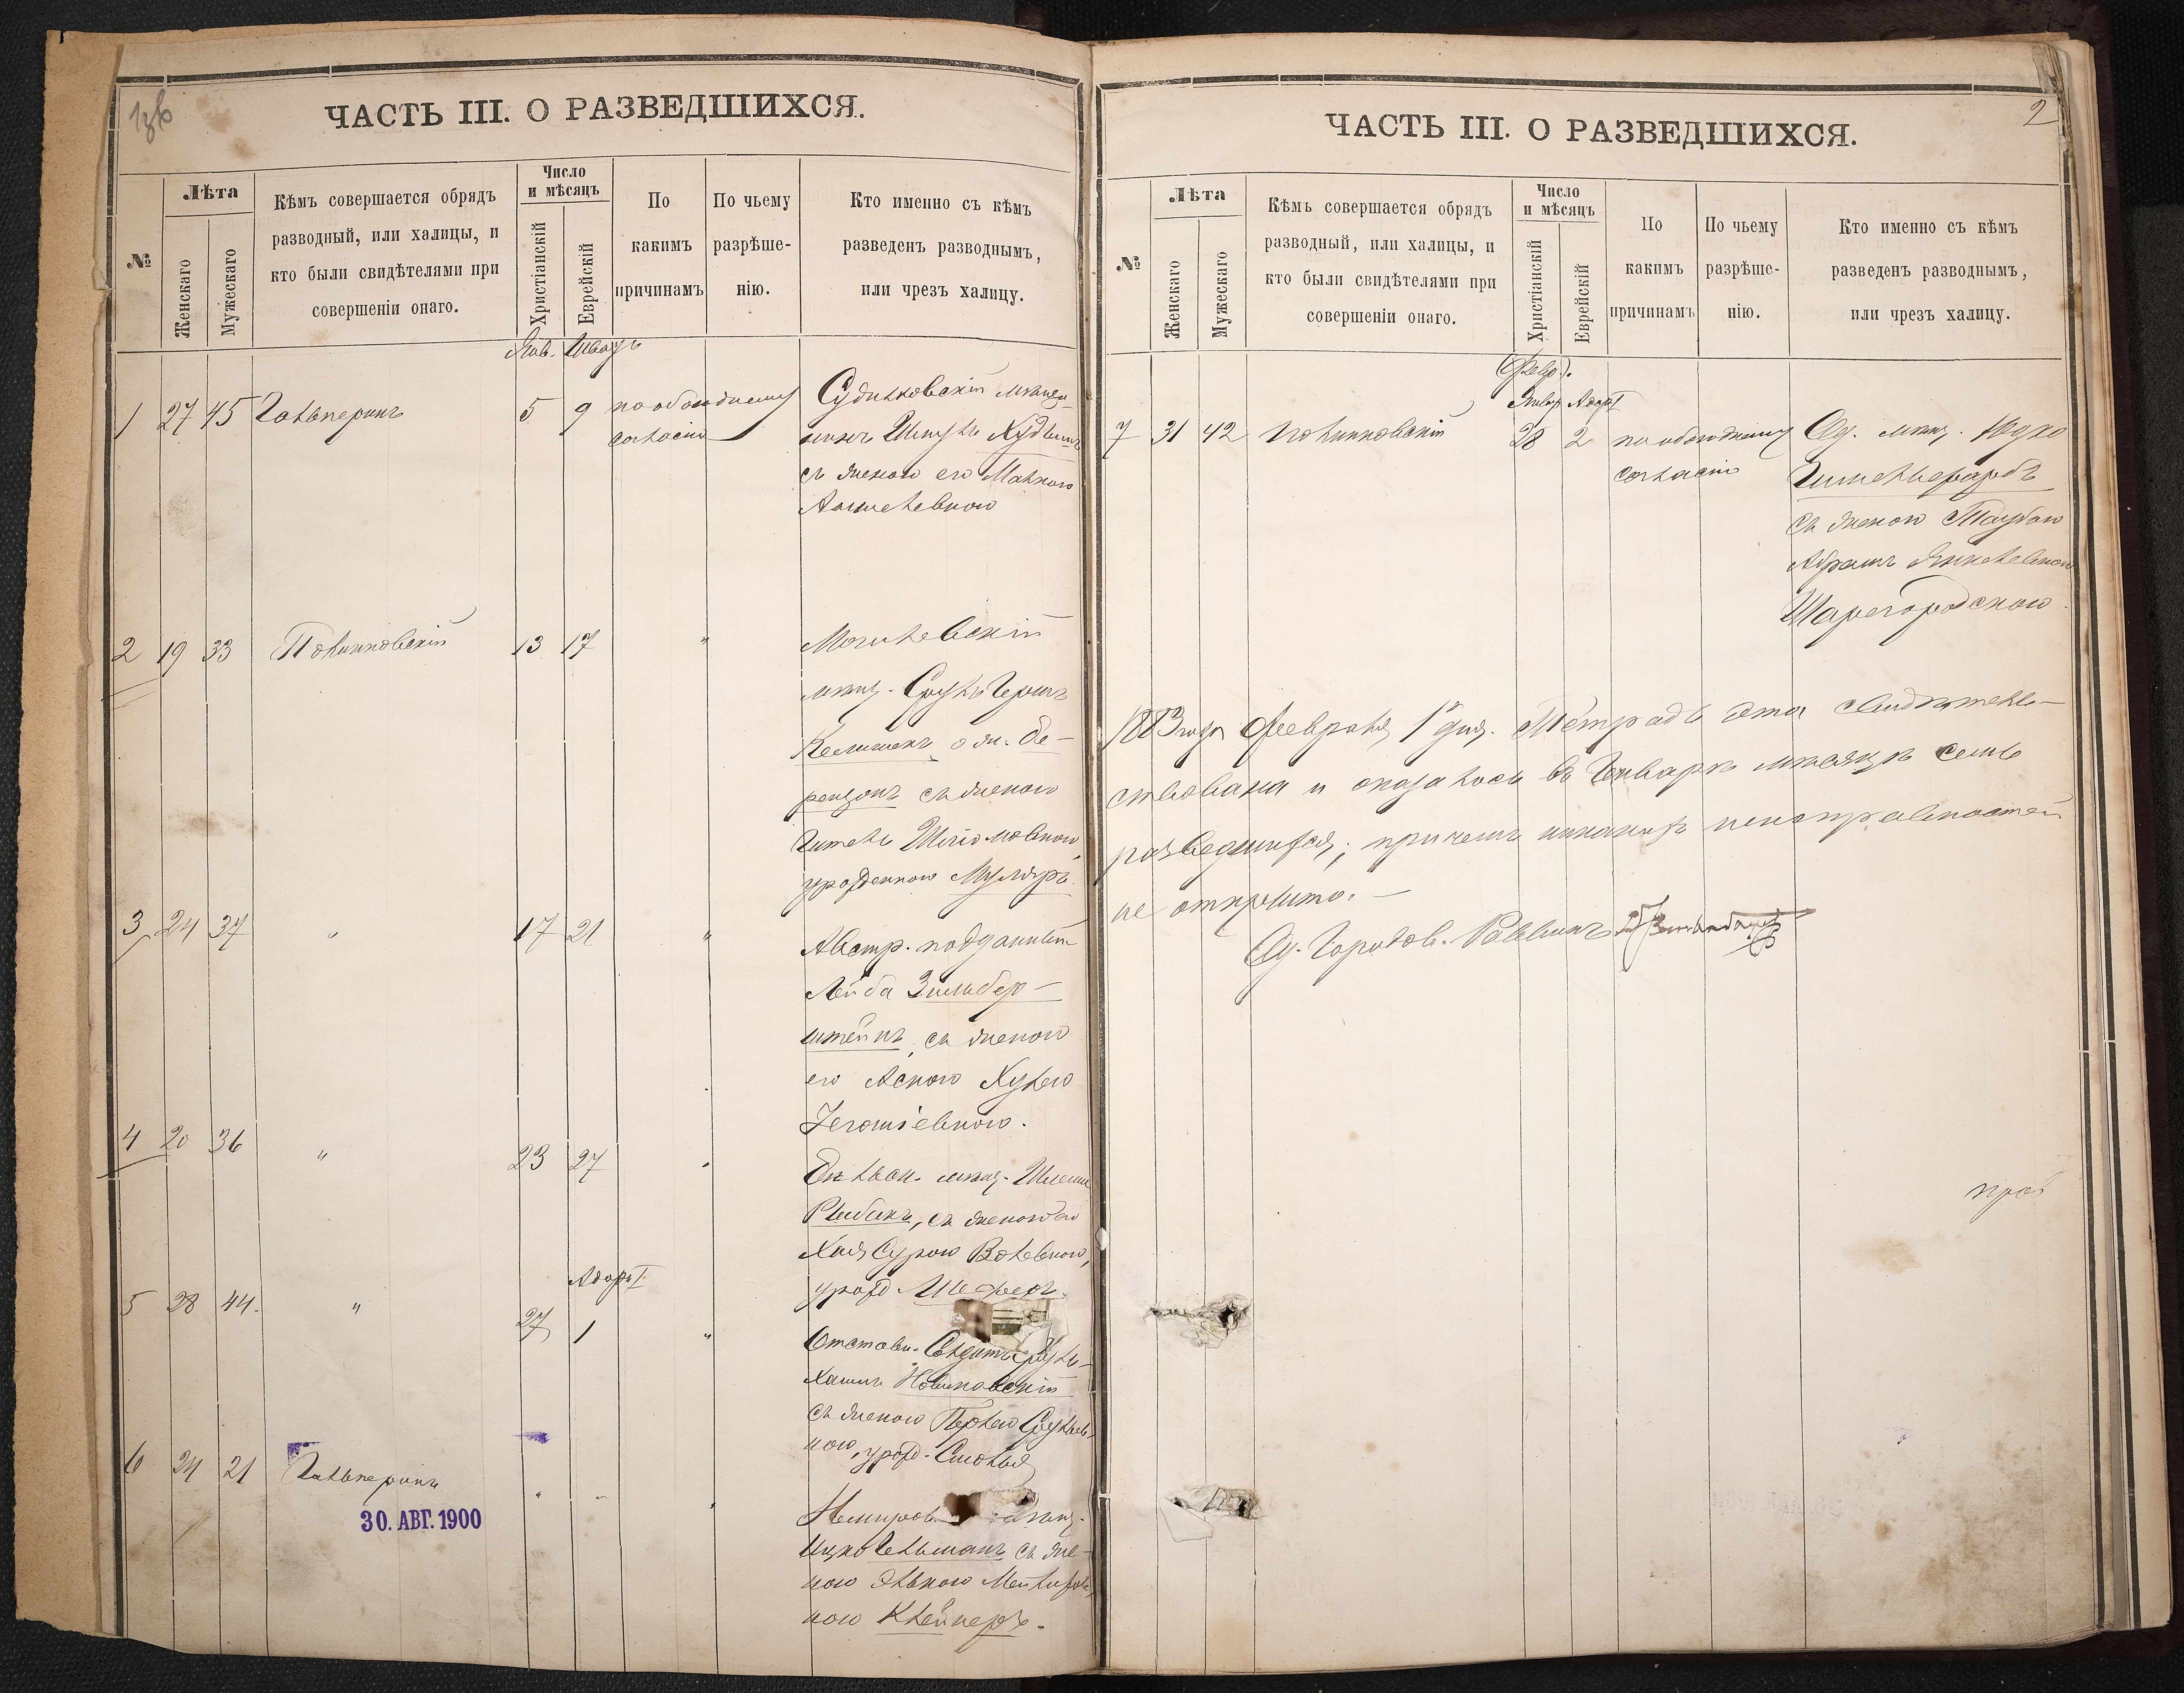 ЧАСТЬ III. О РАЗВЕДШИХСЯ.
№
Лѣта
Женскаго
Мужескаго
Кѣмъ совершается обрядъ
разводный, или халицы, и
кто были свидѣтелями при
совершеніи онаго.
Число
и мѣсяцъ
Христіанскій
Еврейскій
По
какимъ
причинамъ
По чьему
разрѣше-
нію.
Кто именно съ кѣмъ
разведенъ разводнымъ,
или чрезъ халицу.
Янв. Шватъ
1 27 45 Гальперинъ 5 9 по обоюдному
согласію
Судилковскій мѣща-
нинъ
съ женою его Малкою
Аншелевною
2 19 33 Полинковскій 13 17 "
Могилевскій
мѣщ. Сруль Герш
съ женою
Гитель Шліомовною,
урожденною Муляръ
3 24 37 " 17 21 "
Австр. подданный
Лейба Зильбер-
штейнъ, съ женою
его Хулею
4 20 36 " 23 27 "
мѣщ.
Рыбакъ, съ женою его
Хая Сурою Волевною,
урожд. Шеферъ.
Адаръ I
5 28 44. " 27 1 "
Отставн. Солдатъ Сруль-
Хаимъ Новиковскій
съ женою Перлею Срулев-
ною, урожд.
6 24 21 Гальперинъ " " "
Немиров. мѣщ.
Ицко Гельманъ съ же-
ною Элькою
ною Клейнеръ.
30. АВГ. 1900
ЧАСТЬ III. О РАЗВЕДШИХСЯ.
2
№
Лѣта
Женскаго
Мужескаго
Кѣмъ совершается обрядъ
разводный, или халицы, и
кто были свидѣтелями при
совершеніи онаго.
Число
и мѣсяцъ
Христіанскій
Еврейскій
По
какимъ
причинамъ
По чьему
разрѣше-
нію.
Кто именно съ кѣмъ
разведенъ разводнымъ,
или чрезъ халицу.
Январ Адаръ I
7 31 42 Полинковскій 28 2 по обоюдному
согласію
Од. мѣщ.
Гимельфарбъ
съ женою Таубою
Абрамъ Янкелевною
Шарегородскою.
1883 года Февраля 1 дня. Тетрадь эта свидѣтель-
ствована и оказалось въ Январѣ мѣсяцѣ семь
разведшихся; причемъ никакихъ неисправностей
не открыто. —
Од. Городов. Раввинъ